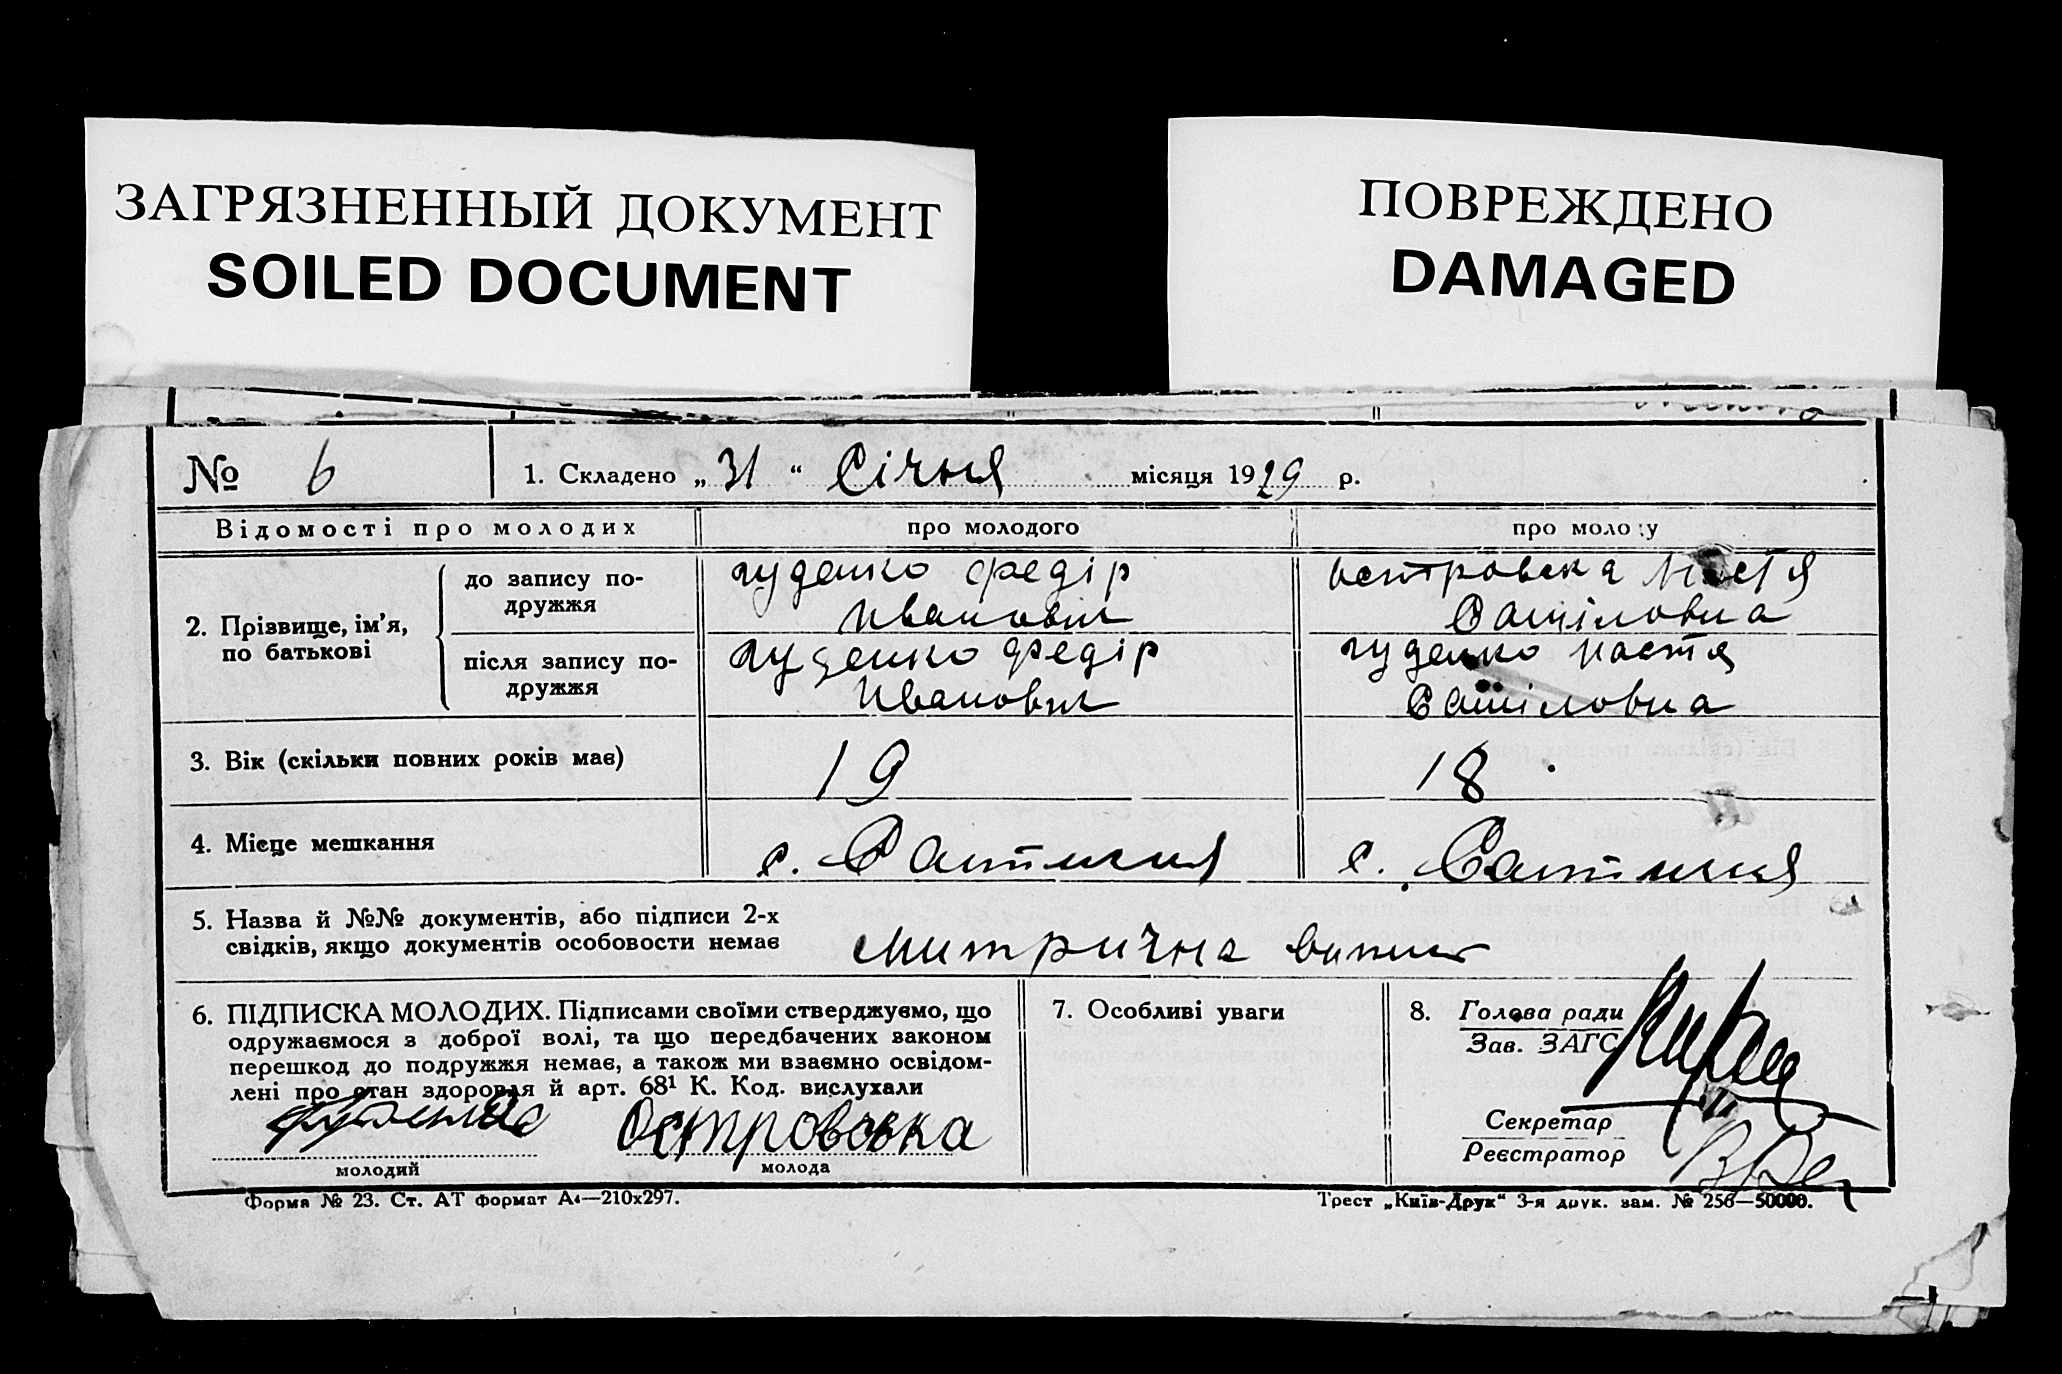 ЗАГРЯЗНЕННЫЙ ДОКУМЕНТ
SOILED DOCUMENT
ПОВРЕЖДЕНО
DAMAGED
№ 6
1. Складено „31“ Січня місяця 1929 р.
Відомості про молодих
про молодого
про молоду
2. Прізвище, ім'я, по батькові
до запису по-
дружжя
гуденко федір
Иванович
островска Настя
Самііловна
після запису по-
дружжя
гуденко федір
Иванович
гуденко настя
3. Вік (скільки повних років має)
19
18
4. Місце мешкання
с.
с.
5. Назва й №№ документів, або підписи 2-х
свідків, якщо документів особовости немає
митрична
6. ПІДПИСКА МОЛОДИХ. Підписами своїми стверджуємо, що
одружаємося з доброї волі, та що передбачених законом
перешкод до подружжя немає, а також ми взаємно освідом-
лені про стан здоровля й арт. 68¹ К. Код. вислухали
Островська
молодий
молода
7. Особливі уваги
8. Голова ради
Зав. ЗАГС
Секретар
Реєстратор
Форма № 23. Ст. АТ формат А4—210х297.
Трест „Київ-Друк“ 3-я друк. зам. № 256—50000.